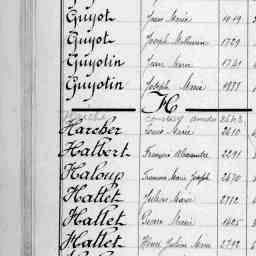 Guyot Jean Marie 1919
Guyot Joseph Mathurin 1729
Guyotin Jean Marie 1741
Guyotin Joseph Marie 1877
H
Harcher Louis Marie 2610
Hatbert François Alexandre 2291
Haloup François Marie Joseph 2670
Hallet Julien Marie 2772
Hallet Pierre Marie 1405
Hallet Henri Julien Marie 2792